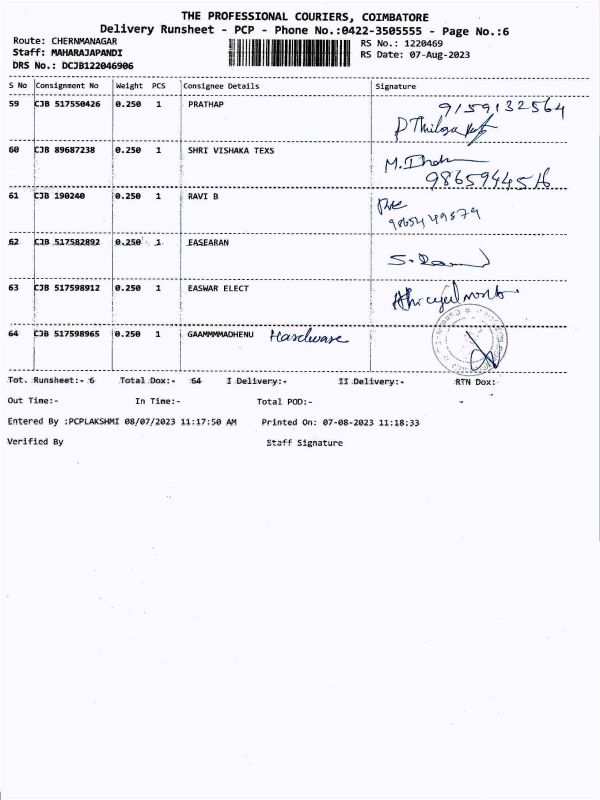 THE PROFESSIONAL COURIERS, COIMBATORE
Delivery Runsheet - PCP - Phone No.:0422-3505555 - Page No.:6
Route: CHERNMANAGAR
RS No.: 1220469
Staff: MAHARAJAPANDI
RS Date: 07-Aug-2023
DRS No.: DCJB122046906
S No Consignment No Weight PCS Consignee Details Signature
59 CJB 517550426 0.250 1 PRATHAP 9159132564
60 CJB 89687238 0.250 1 SHRI VISHAKA TEXS
61 CJB 190240 0.250 1 RAVI B
62 CJB 517582892 0.250 1 EASEARAN
63 CJB 517598912 0.250 1 EASWAR ELECT
64 CJB 517598965 0.250 1 GAAMMMMADHENU Hardware
Tot. Runsheet:- 6 Total Dox:- 64 I Delivery:- II Delivery:- RTN Dox:
Out Time:- In Time:- Total POD:-
Entered By :PCPLAKSHMI 08/07/2023 11:17:50 AM Printed On: 07-08-2023 11:18:33
Verified By Staff Signature